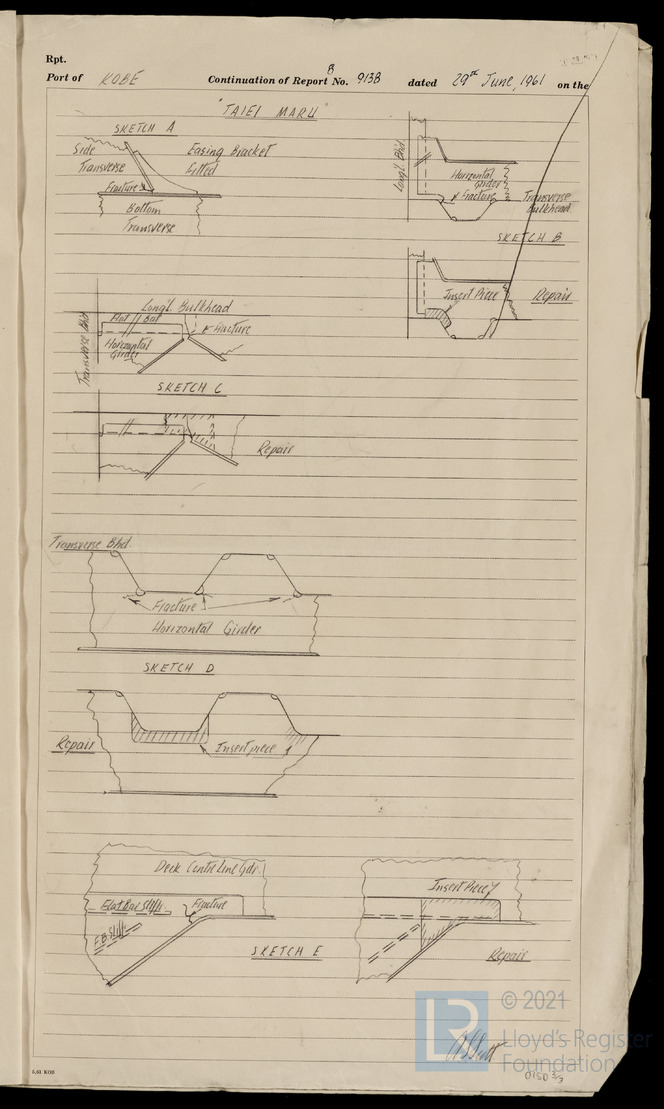 Rpt.
8
Port of KOBE Continuation of Report No. 9138 dated 29th June, 1961 on the
"TAIEI MARU"
SKETCH A
Side
Transverse
Easing Bracket
fitted
Fracture
Bottom
Transverse
Longl. Bhd
Horizontal
Girder
Fracture
Transverse
Bulkhead
SKETCH B
Insert Piece
Repair
Longl. Bulkhead
Flat Bar
Fracture
Horizontal
Girder
Transverse Bhd
SKETCH C
Repair
Transverse Bhd.
Fracture
Horizontal Girder
SKETCH D
Repair
Insert piece
Deck Centre Line Gdr.
Flat Bar Stiff.
Fracture
F.B. Stiff.
SKETCH E
Insert Piece
Repair
© 2021
Lloyd's Register
Foundation
5,61 KOB